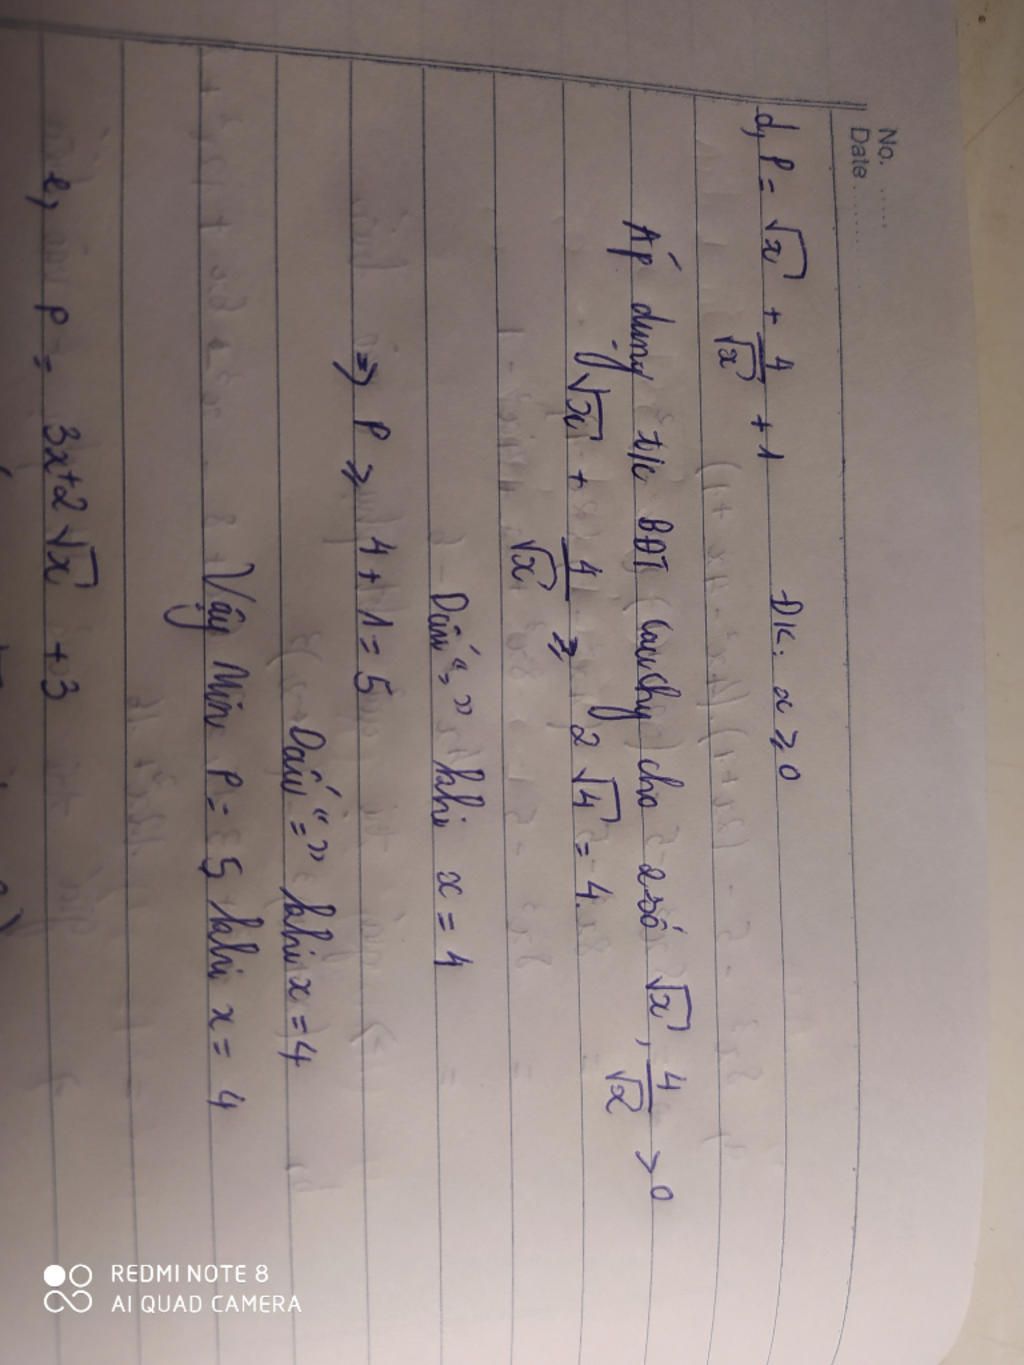 No. ......
Date ..........
d, P = √x + 4/√x + 1 ĐK: x ⩾ 0
Áp dụng t/c BĐT Cauchy cho 2 số √x, 4/√x > 0
√x + 4/√x ⩾ 2√4 = 4.
Dấu "=" khi x = 4
⇒ P ⩾ 4 + 1 = 5
Dấu "=" khi x = 4
Vậy Min P = 5 khi x = 4
e, P = 3x+2√x + 3
REDMI NOTE 8
AI QUAD CAMERA